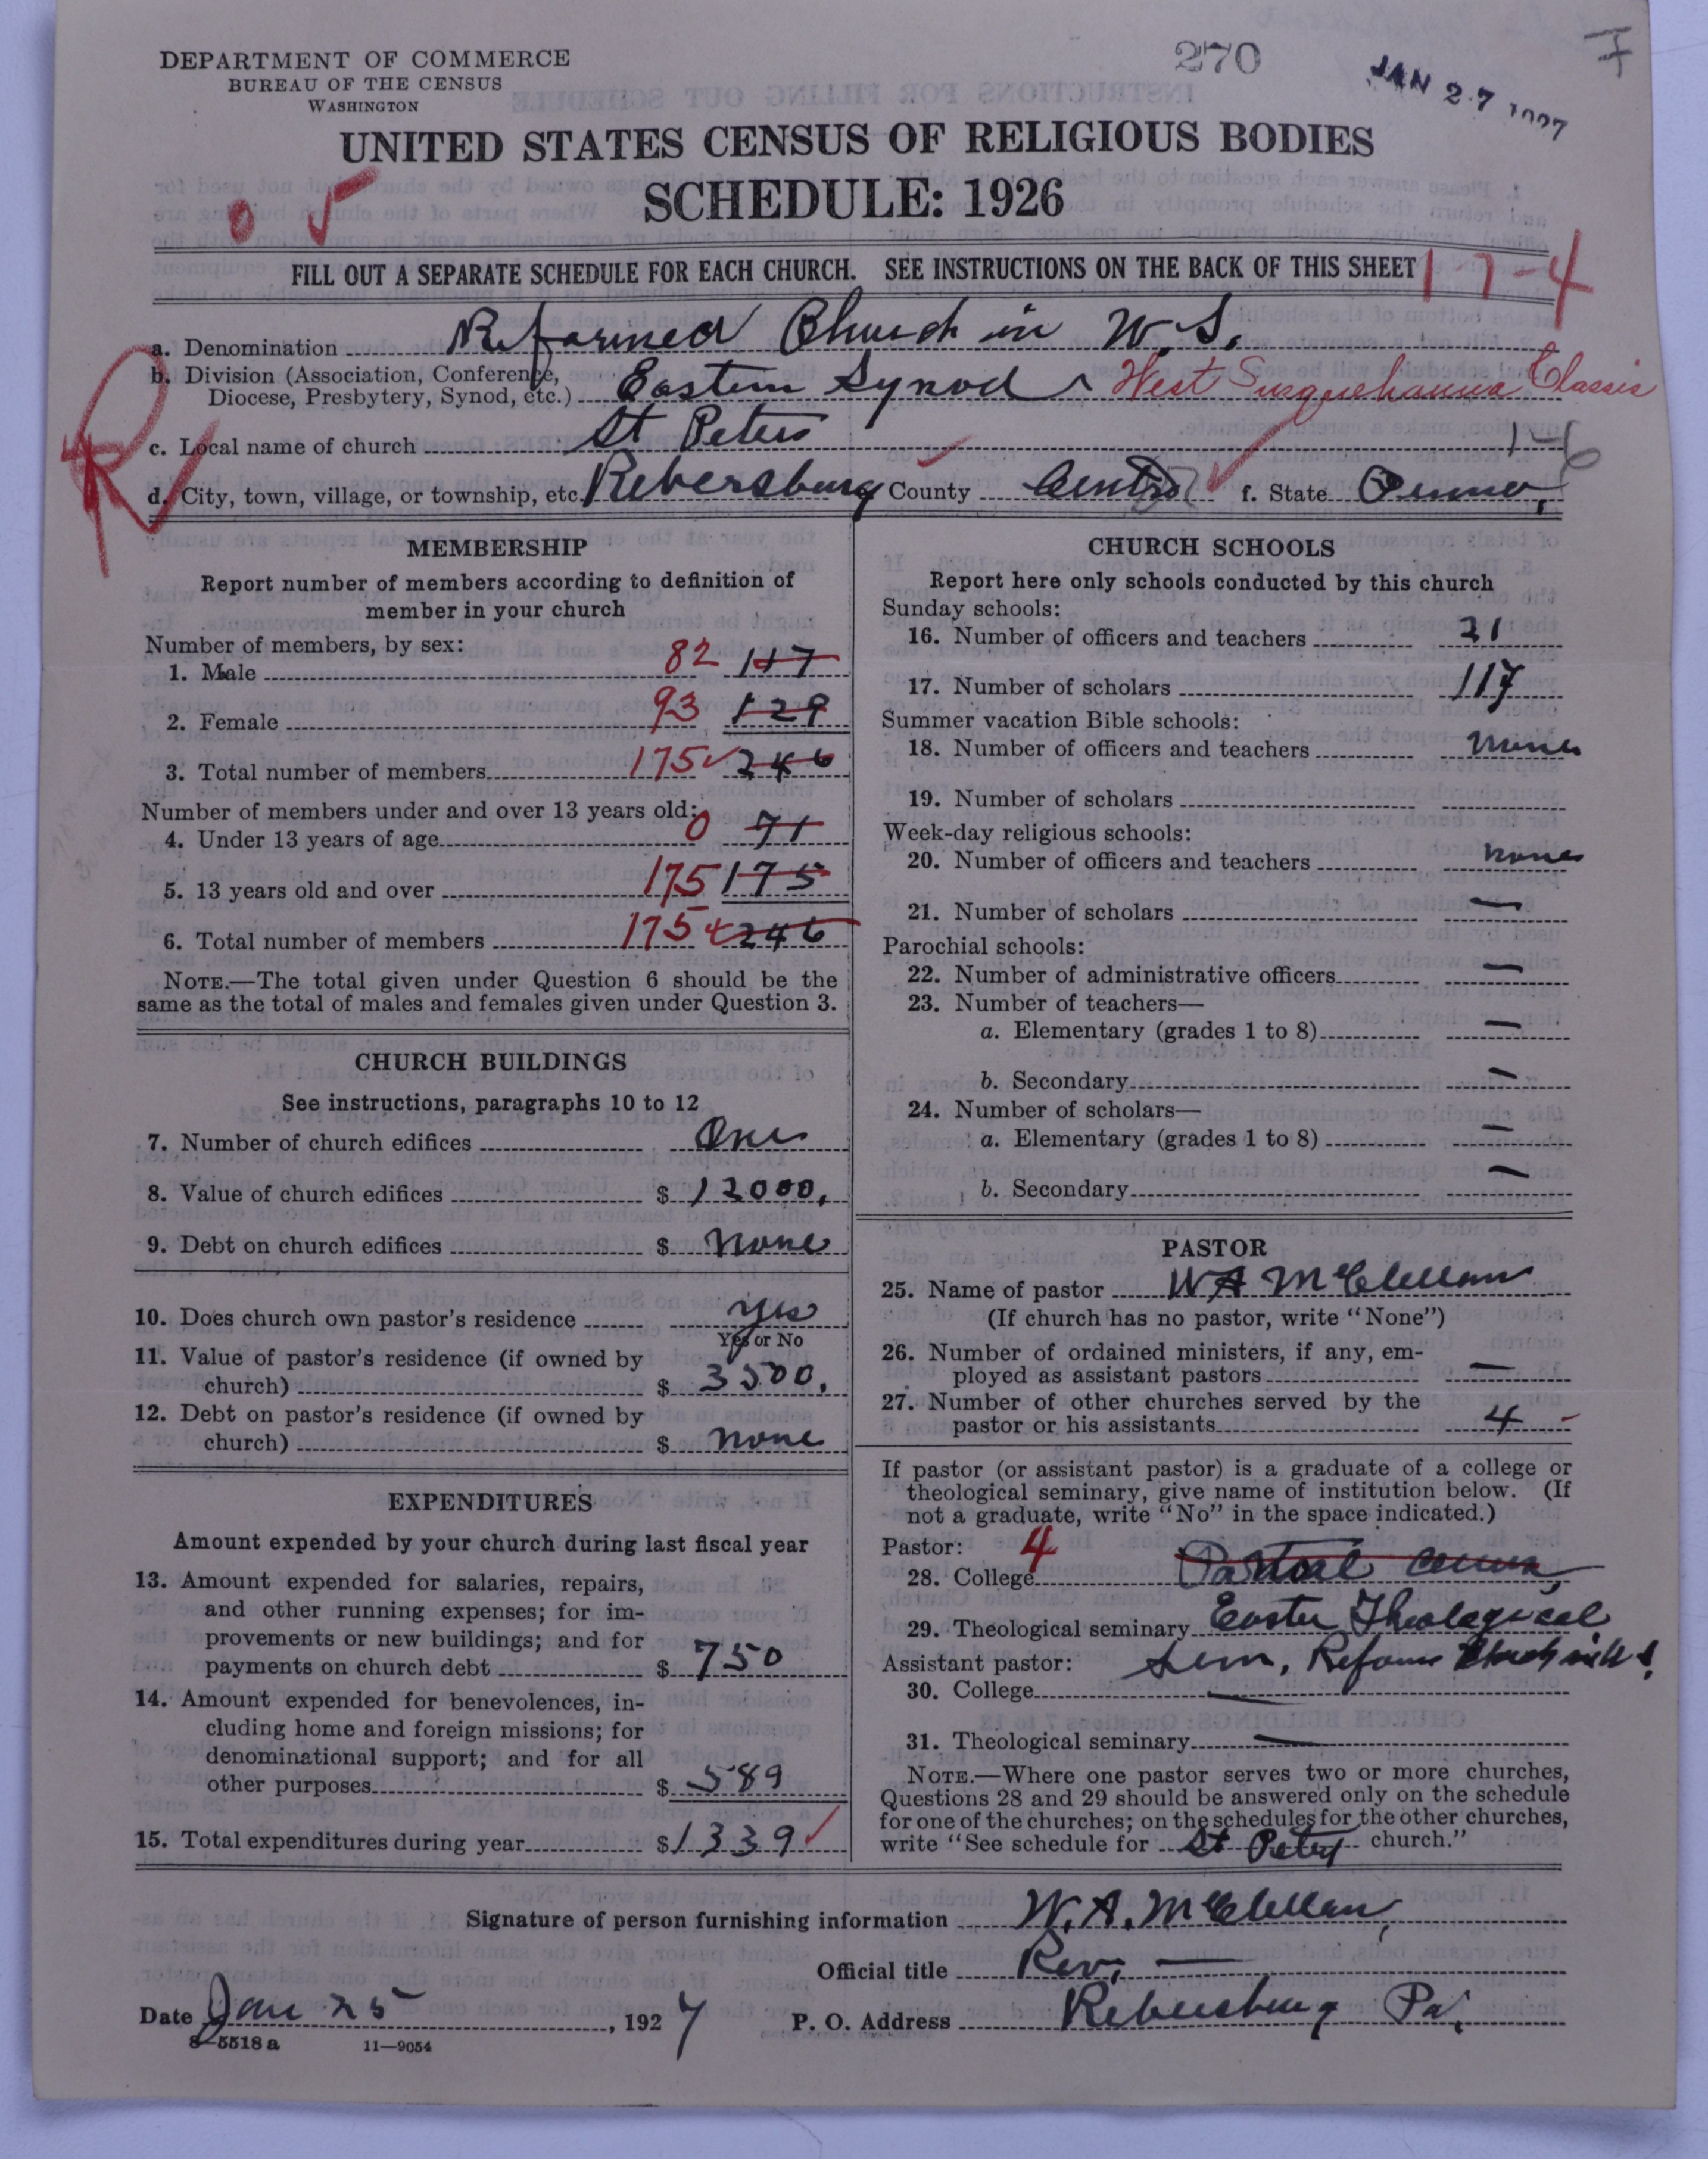 270
JAN 27 1927
DEPARTMENT OF COMMERCE
BUREAU OF THE CENSUS
WASHINGTON
UNITED STATES CENSUS OF RELIGIOUS BODIES
SCHEDULE: 1926
FILL OUT A SEPARATE SCHEDULE FOR EACH CHURCH. SEE INSTRUCTIONS ON THE BACK OF THIS SHEET
1-7-4
a. Denomination Reformed Church in U.S.
b. Division (Association, Conference,
Diocese, Presbytery, Synod, etc.) Eastern Synod West Susquehanna Classis
c. Local name of church St Peters
1-6
d. City, town, village, or township, etc. Rebersburg County Centre f. State Penna,
MEMBERSHIP
Report number of members according to definition of
member in your church
Number of members, by sex:
1. Male 82 117
2. Female 93 129
3. Total number of members 175 246
Number of members under and over 13 years old:
4. Under 13 years of age 0 71
5. 13 years old and over 175 175
6. Total number of members 175 246
NOTE.—The total given under Question 6 should be the
same as the total of males and females given under Question 3.
CHURCH BUILDINGS
See instructions, paragraphs 10 to 12
7. Number of church edifices One
8. Value of church edifices $ 12000.
9. Debt on church edifices $ none
10. Does church own pastor's residence yes
Yes or No
11. Value of pastor's residence (if owned by
church) $ 3500.
12. Debt on pastor's residence (if owned by
church) $ none
EXPENDITURES
Amount expended by your church during last fiscal year
13. Amount expended for salaries, repairs,
and other running expenses; for im-
provements or new buildings; and for
payments on church debt $ 750
14. Amount expended for benevolences, in-
cluding home and foreign missions; for
denominational support; and for all
other purposes $ 589
15. Total expenditures during year $ 1339
CHURCH SCHOOLS
Report here only schools conducted by this church
Sunday schools:
16. Number of officers and teachers 21
17. Number of scholars 117
Summer vacation Bible schools:
18. Number of officers and teachers none
19. Number of scholars
Week-day religious schools:
20. Number of officers and teachers none
21. Number of scholars —
Parochial schools:
22. Number of administrative officers —
23. Number of teachers—
a. Elementary (grades 1 to 8) —
b. Secondary —
24. Number of scholars—
a. Elementary (grades 1 to 8) —
b. Secondary —
PASTOR
25. Name of pastor W A McClellan
(If church has no pastor, write "None")
26. Number of ordained ministers, if any, em-
ployed as assistant pastors —
27. Number of other churches served by the
pastor or his assistants 4
If pastor (or assistant pastor) is a graduate of a college or
theological seminary, give name of institution below. (If
not a graduate, write "No" in the space indicated.)
Pastor: 4
28. College
29. Theological seminary Easter Theological
Sem, Reform Church in U S.
Assistant pastor:
30. College —
31. Theological seminary —
NOTE.—Where one pastor serves two or more churches,
Questions 28 and 29 should be answered only on the schedule
for one of the churches; on the schedules for the other churches,
write "See schedule for St Peters church."
Signature of person furnishing information W. A. McClellan,
Official title Rev. —
Date Jan 25, 1927 P. O. Address Rebersburg Pa.
8-5518 a 11—9054